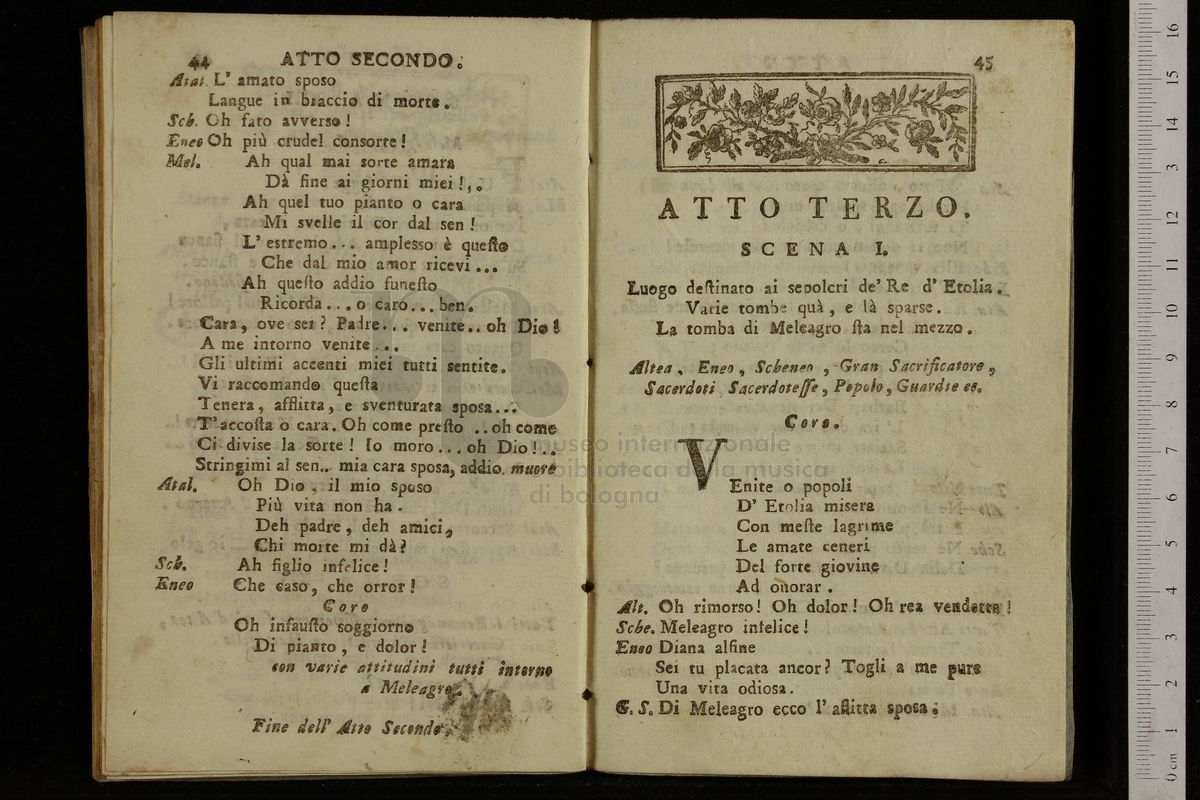 44 ATTO SECONDO.
Atal. L' amato sposo
Langue in braccio di morte.
Sch. Oh fato avverso!
Eneo Oh più crudel consorte!
Mel. Ah qual mai sorte amara
Dà fine ai giorni miei!..
Ah quel tuo pianto o cara
Mi svelle il cor dal sen!
L' estremo... amplesso è questo
Che dal mio amor ricevi...
Ah questo addio funesto
Ricorda... o caro... ben.
Cara, ove sei? Padre... venite.. oh Dio!
A me intorno venite...
Gli ultimi accenti miei tutti sentite.
Vi raccomando questa
Tenera, afflitta, e sventurata sposa...
T'accosta o cara. Oh come presto .. oh come
Ci divise la sorte! Io moro... oh Dio!..
Stringimi al sen.. mia cara sposa, addio. muore
Atal. Oh Dio, il mio sposo
Più vita non ha.
Deh padre, deh amici,
Chi morte mi dà?
Sch. Ah figlio infelice!
Eneo Che caso, che orror!
Coro
Oh infausto soggiorno
Di pianto, e dolor!
con varie attitudini tutti intorno
a Meleagro.
Fine dell' Atto Secondo.
45
ATTO TERZO.
SCENA I.
Luogo destinato ai sepolcri de' Re d' Etolia.
Varie tombe quà, e là sparse.
La tomba di Meleagro sta nel mezzo.
Altea, Eneo, Scheneo, Gran Sacrificatore,
Sacerdoti Sacerdotesse, Popolo, Guardie ec.
Coro.
VEnite o popoli
D' Etolia misera
Con meste lagrime
Le amate ceneri
Del forte giovine
Ad onorar.
Alt. Oh rimorso! Oh dolor! Oh rea vendetta!
Sche. Meleagro infelice!
Eneo Diana alfine
Sei tu placata ancor? Togli a me pure
Una vita odiosa.
G. S. Di Meleagro ecco l' aflitta sposa.
museo internazionale
e biblioteca della musica
di bologna
0 cm 1 2 3 4 5 6 7 8 9 10 11 12 13 14 15 16